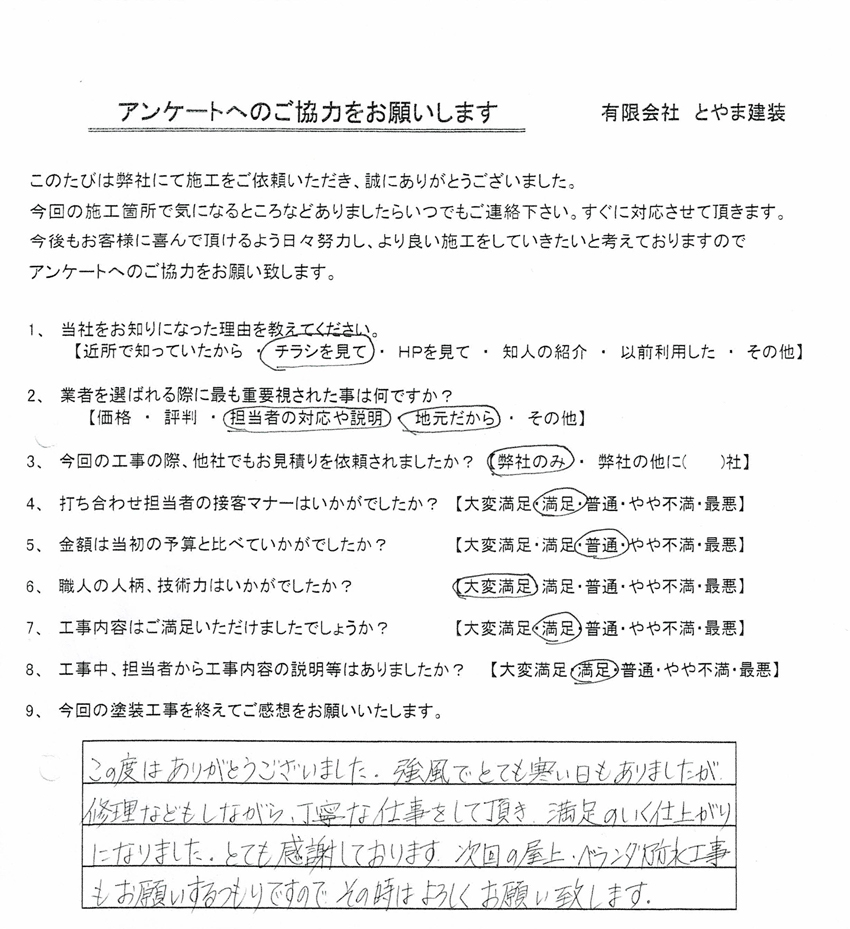 アンケートへのご協力をお願いします 有限会社 とやま建装
このたびは弊社にて施工をご依頼いただき、誠にありがとうございました。
今回の施工箇所で気になるところなどありましたらいつでもご連絡下さい。すぐに対応させて頂きます。
今後もお客様に喜んで頂けるよう日々努力し、より良い施工をしていきたいと考えておりますので
アンケートへのご協力をお願い致します。
1、 当社をお知りになった理由を教えてください。
【近所で知っていたから ・ チラシを見て ・ HPを見て ・ 知人の紹介 ・ 以前利用した ・ その他】
2、 業者を選ばれる際に最も重要視された事は何ですか？
【価格 ・ 評判 ・ 担当者の対応や説明 ・ 地元だから ・ その他】
3、 今回の工事の際、他社でもお見積りを依頼されましたか？ 【弊社のみ ・ 弊社の他に( )社】
4、 打ち合わせ担当者の接客マナーはいかがでしたか？ 【大変満足・満足・普通・やや不満・最悪】
5、 金額は当初の予算と比べていかがでしたか？ 【大変満足・満足・普通・やや不満・最悪】
6、 職人の人柄、技術力はいかがでしたか？ 【大変満足・満足・普通・やや不満・最悪】
7、 工事内容はご満足いただけましたでしょうか？ 【大変満足・満足・普通・やや不満・最悪】
8、 工事中、担当者から工事内容の説明等はありましたか？ 【大変満足・満足・普通・やや不満・最悪】
9、 今回の塗装工事を終えてご感想をお願いいたします。
この度はありがとうございました。強風でとても寒い日もありましたが
修理などもしながら、丁寧な仕事をして頂き、満足のいく仕上がり
になりました。とても感謝しております。次回の屋上・ベランダ防水工事
もお願いするつもりですので その時はよろしくお願い致します。